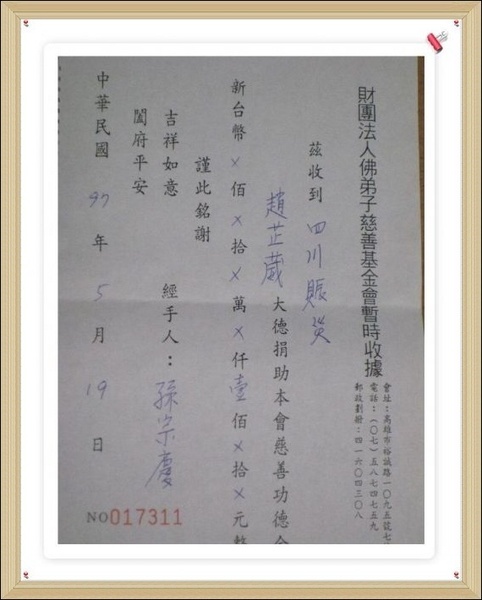 財團法人佛弟子慈善基金會暫時收據
會址：高雄市裕誠路一〇九五號七
電話：（〇七）五八七四七五九
郵政劃撥：四一六〇四三〇八
茲收到 四川賑災
趙芷葳 大德捐助本會慈善功德金
新台幣×佰×拾×萬×仟壹佰×拾×元整
謹此銘謝
吉祥如意
闔府平安
經手人：孫宗慶
中華民國 97 年 5 月 19 日
NO 017311